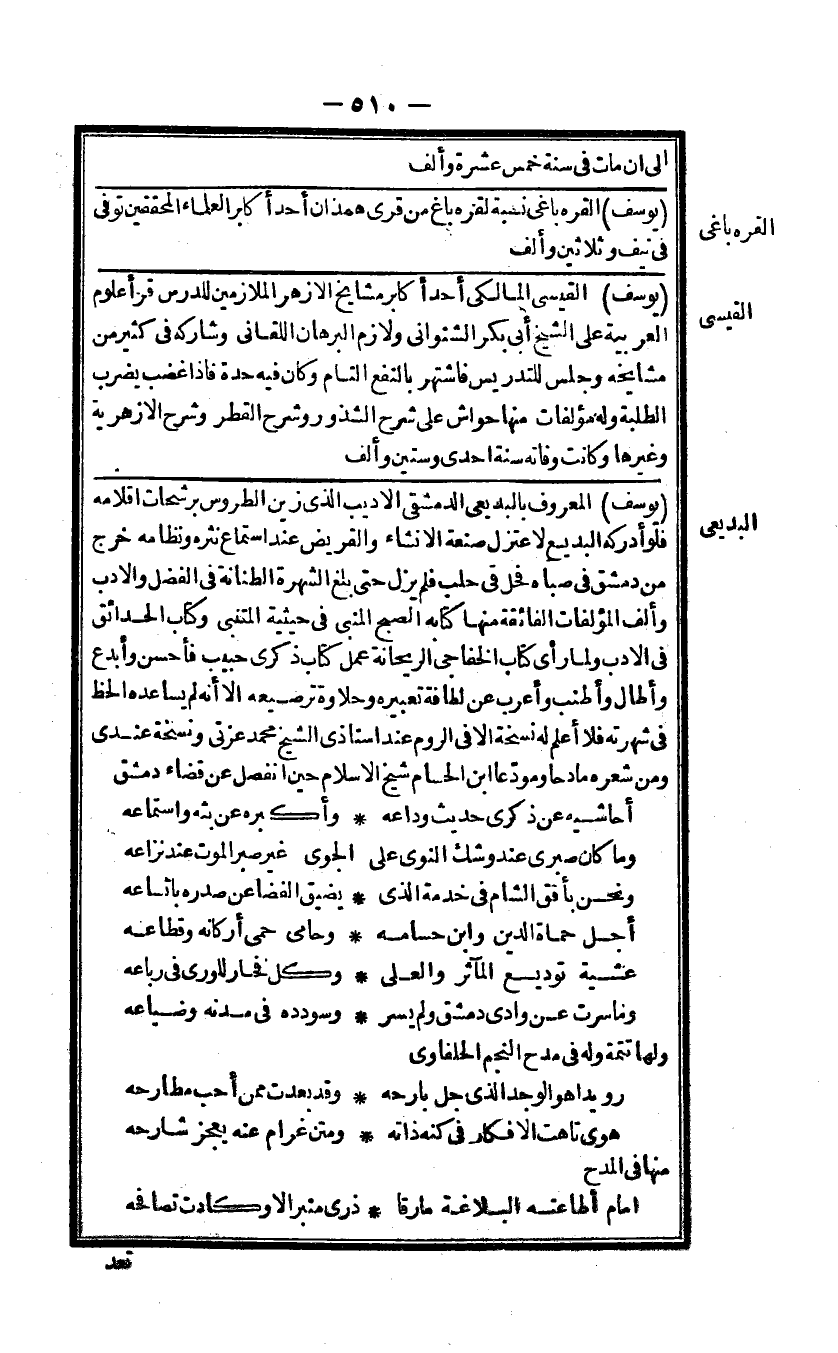 — ٥١٠ —
الى ان مات فى سنة خمس عشرة وألف
(يوسف) القره باغى نسبة لقره باغ من قرى همذان أحد أكابر العلماء المحققين توفى
القره باغى
فى نيف وثلاثين وألف
(يوسف) القيسى المالكى أحد أكابر مشايخ الازهر الملازمين للدرس قرأ علوم
القيسى
العربية على الشيخ أبى بكر الشنوانى ولازم البرهان اللقانى وشاركه فى كثير من
مشايخه وجلس للتدريس فاشتهر بالنفع التام وكان فيه حدة فاذا غضب يضرب
الطلبة وله مؤلفات منها حواش على شرح الشذور وشرح القطر وشرح الازهرية
وغيرها وكانت وفاته سنة احدى وستين وألف
(يوسف) المعروف بالبديعى الدمشقى الاديب الذى زين الطروس برشحات اقلامه
البديعى
فلو أدركه البديع لاعتزل صنعة الانشاء والقريض عند استماع نثره ونظامه خرج
من دمشق فى صباه فحل فى حلب فلم يزل حتى بلغ الشهرة الطنانة فى الفضل والادب
وألف المؤلفات الفائقة منها كتابه الصبح المنبى فى حيثية المتنبى وكتاب الحدائق
فى الادب ولما رأى كتاب الخفاجى الريحانة عمل كتاب ذكرى حبيب فأحسن وأبدع
وأطال وأطنب وأعرب عن لطافة تعبيره وحلاوة ترصيعه الا أنه لم يساعده الحظ
فى شهرته فلا أعلم له نسخة الا فى الروم عند استاذى الشيخ محمد عزتى ونسخة عندى
ومن شعره مادحا ومودعا ابن الحسام شيخ الاسلام حين انفصل عن قضاء دمشق
أحاشيه عن ذكرى حديث وداعه * وأكبره عن بثه واستماعه
وما كان صبرى عند وشك النوى على الجوى غير صبر الموت عند نزاعه
ونحن بأفق الشام فى خدمة الذى * يضيق الفضا عن صدره باتساعه
أجل حماة الدين وابن حسامه * وحامى حمى أركانه وقطاعه
عشية توديع المآثر والعلى * وكل فخار للورى فى رباعه
وما سرت عن وادى دمشق ولم يسر * وسودده فى مدنه وضياعه
ولها تتمة وله فى مدح النجم الحلفاوى
رويدا هو الوجد الذى جل بارحه * وقد بعدت ممن أحب مطارحه
هوى تاهت الافكار فى كنه ذاته * ومتن غرام عنه يعجز شارحه
منها فى المدح
امام أطاعته البلاغة مارقا * ذرى منبر الا وكادت تصافحه
تعد